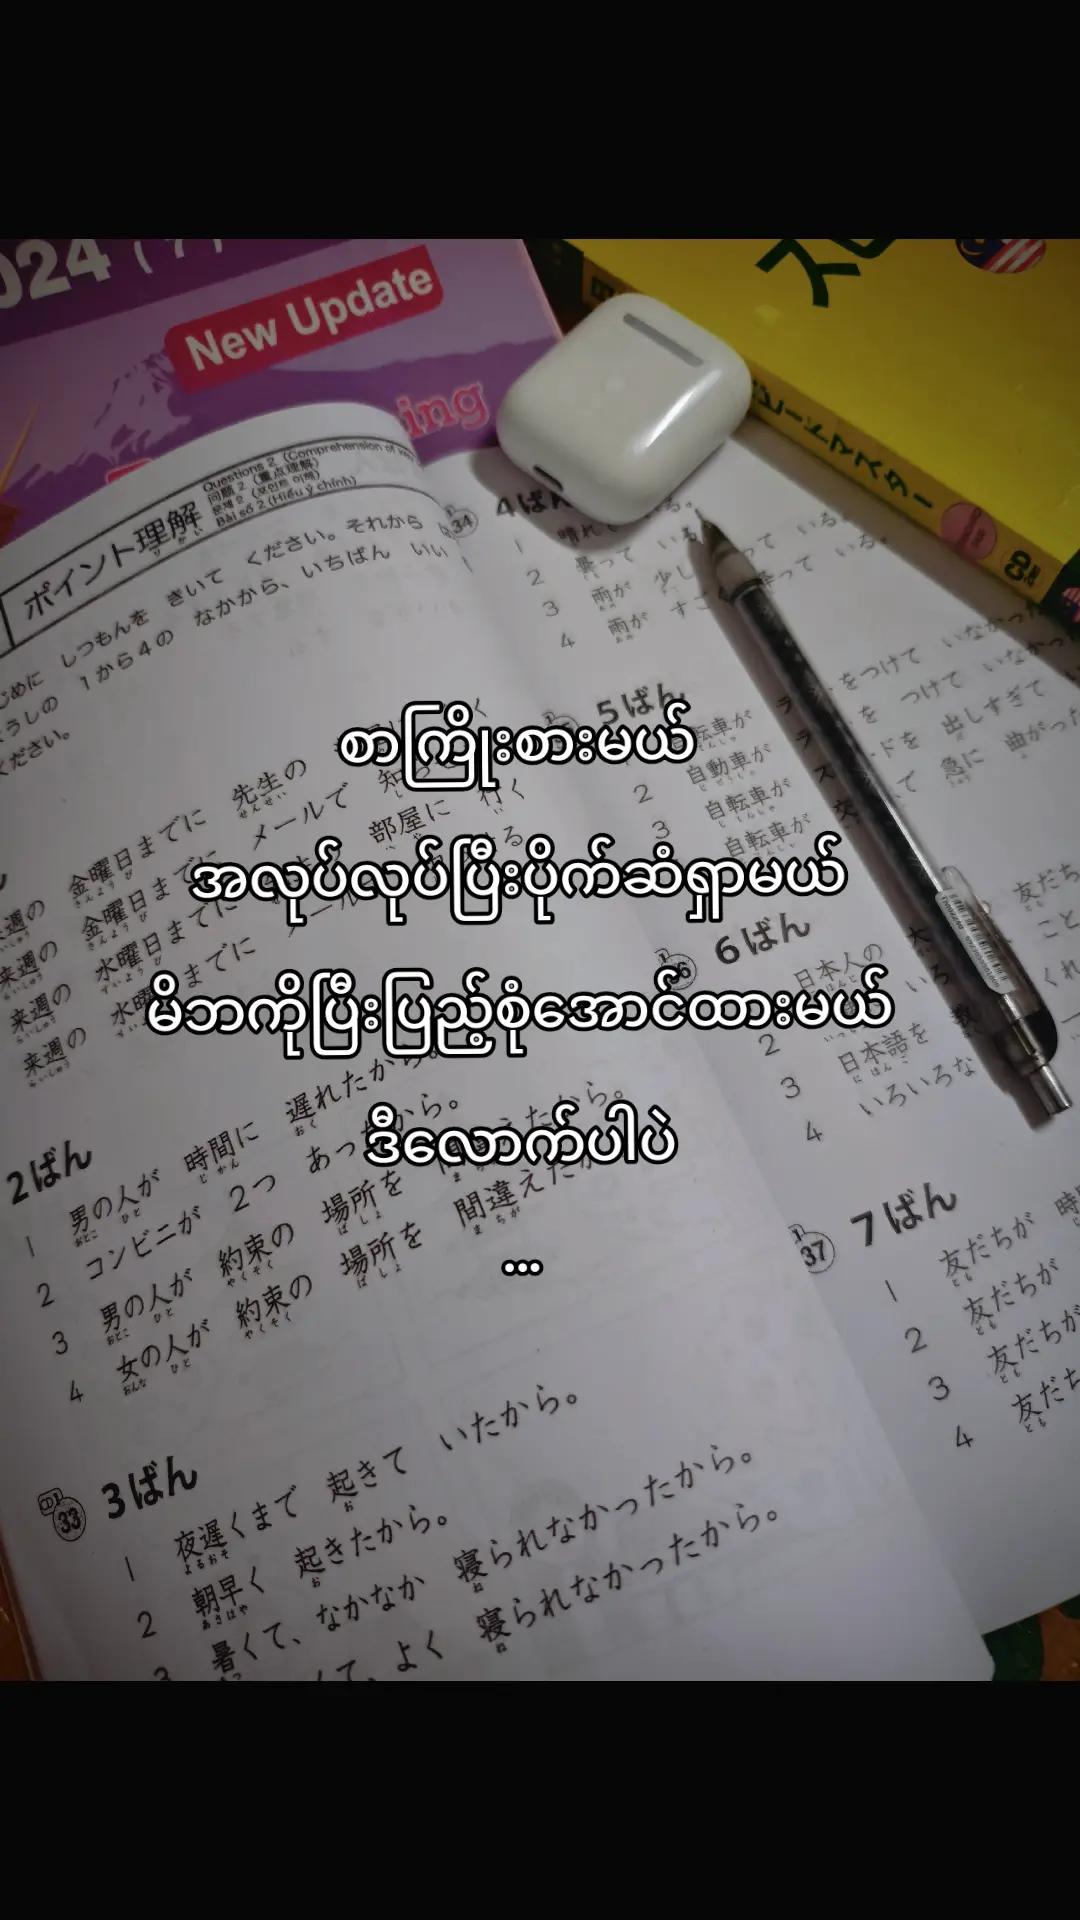 024 (7)
New Update
ing
ポイント理解
Questions 2 (Comprehension of
問題 2 (重点理解)
문제 2 (포인트 이해)
Bài số 2 (Hiểu ý chính)
しつもんを きいて ください。それから
1から4の なかから、いちばん いい
ください。
စာကြိုးစားမယ်
အလုပ်လုပ်ပြီးပိုက်ဆံရှာမယ်
မိဘကိုပြီးပြည့်စုံအောင်ထားမယ်
ဒီလောက်ပါပဲ
...
来週の 金曜日までに 先生の
来週の 金曜日までに メールで
来週の 水曜日までに 部屋に 行く
来週の 水曜日までに
2ばん
1 男の人が 時間に 遅れたから。
2 コンビニが 2つ あったから。
3 男の人が 約束の 場所を 間違えたから。
4 女の人が 約束の 場所を 間違えたか
33 3ばん
1 夜遅くまで 起きて いたから。
2 朝早く 起きたから。
3 暑くて、なかなか 寝られなかったから。
くて、よく 寝られなかったから。
34 4ばん
1 晴れて
2 曇って いる
3 雨が 少し 降って いる。
4 雨が すごく 降って いる。
5ばん
自転車が
2 自動車が
3 自転車が
自転車が
をつけて いなかった
を つけて いなかった
出しすぎて
急に 曲がった
6ばん
日本人の
2
3 日本語を
4 いろいろな
友だち
こと
くれ
37 7ばん
1 友だちが
2 友だちが
3 友だちが
4 友だち
スピードマスター
CD